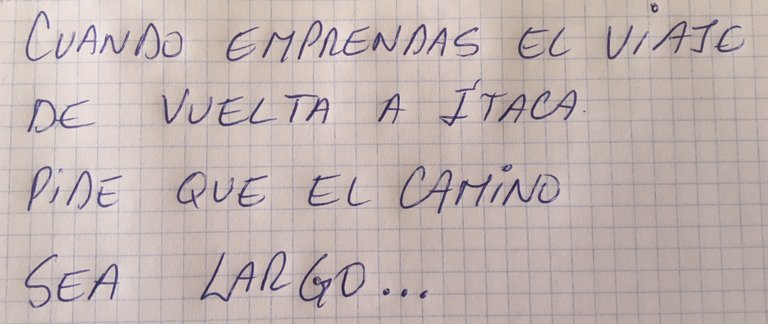 CUANDO EMPRENDAS EL ViAJE
DE VUELTA A ÍTACA.
PiDE QUE EL CAMiNO
SEA LARGO...